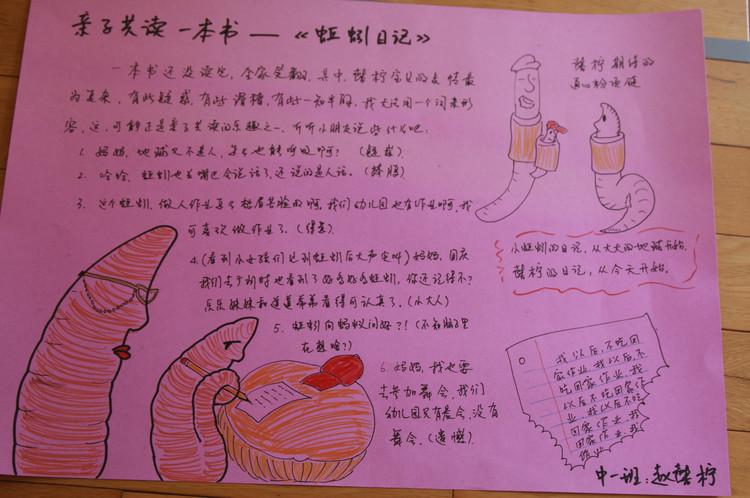 亲子共读一本书——《蚯蚓日记》
一本书还没读完,全家笑翻,其中,馨柠宝贝的表情最
为丰富,有些疑惑,有些滑稽,有些一知半解,我无法用一个词来形
容,这,可能正是亲子共读的乐趣之一,听听小朋友说些什么吧:
1. 妈妈,地球又不是人,怎么也能呼吸啊?(疑惑)
2. 哈哈,蚯蚓也长嘴巴会说话了,还说的是人话。(捧腹)
3. 这个蚯蚓,做人作业
啊,我们幼儿园也有作业啊,我
可喜欢做作业了。(得意)
4.(看到小女孩们见到蚯蚓后大声尖叫)妈妈,国庆
我们去
时也看到了好多好多蚯蚓,你还记得不?
乐乐妹妹和
看得可认真了。(小大人)
5. 蚯蚓向蚂蚁问好?!(不知脑子里
在想啥?)
6. 妈妈,我也要
去参加舞会,我们
幼儿园只有
会,没有
舞会。(遗憾)
馨柠期待的
通心粉项链
小蚯蚓的日记,从大大的地球开始,
馨柠的日记,从今天开始。
我以后不吃回
家作业,我以后不
吃回家作业,我
以后不吃回家作
业,我以后不吃
回家作业,我
回家作业,我
作业
中一班:赵馨柠